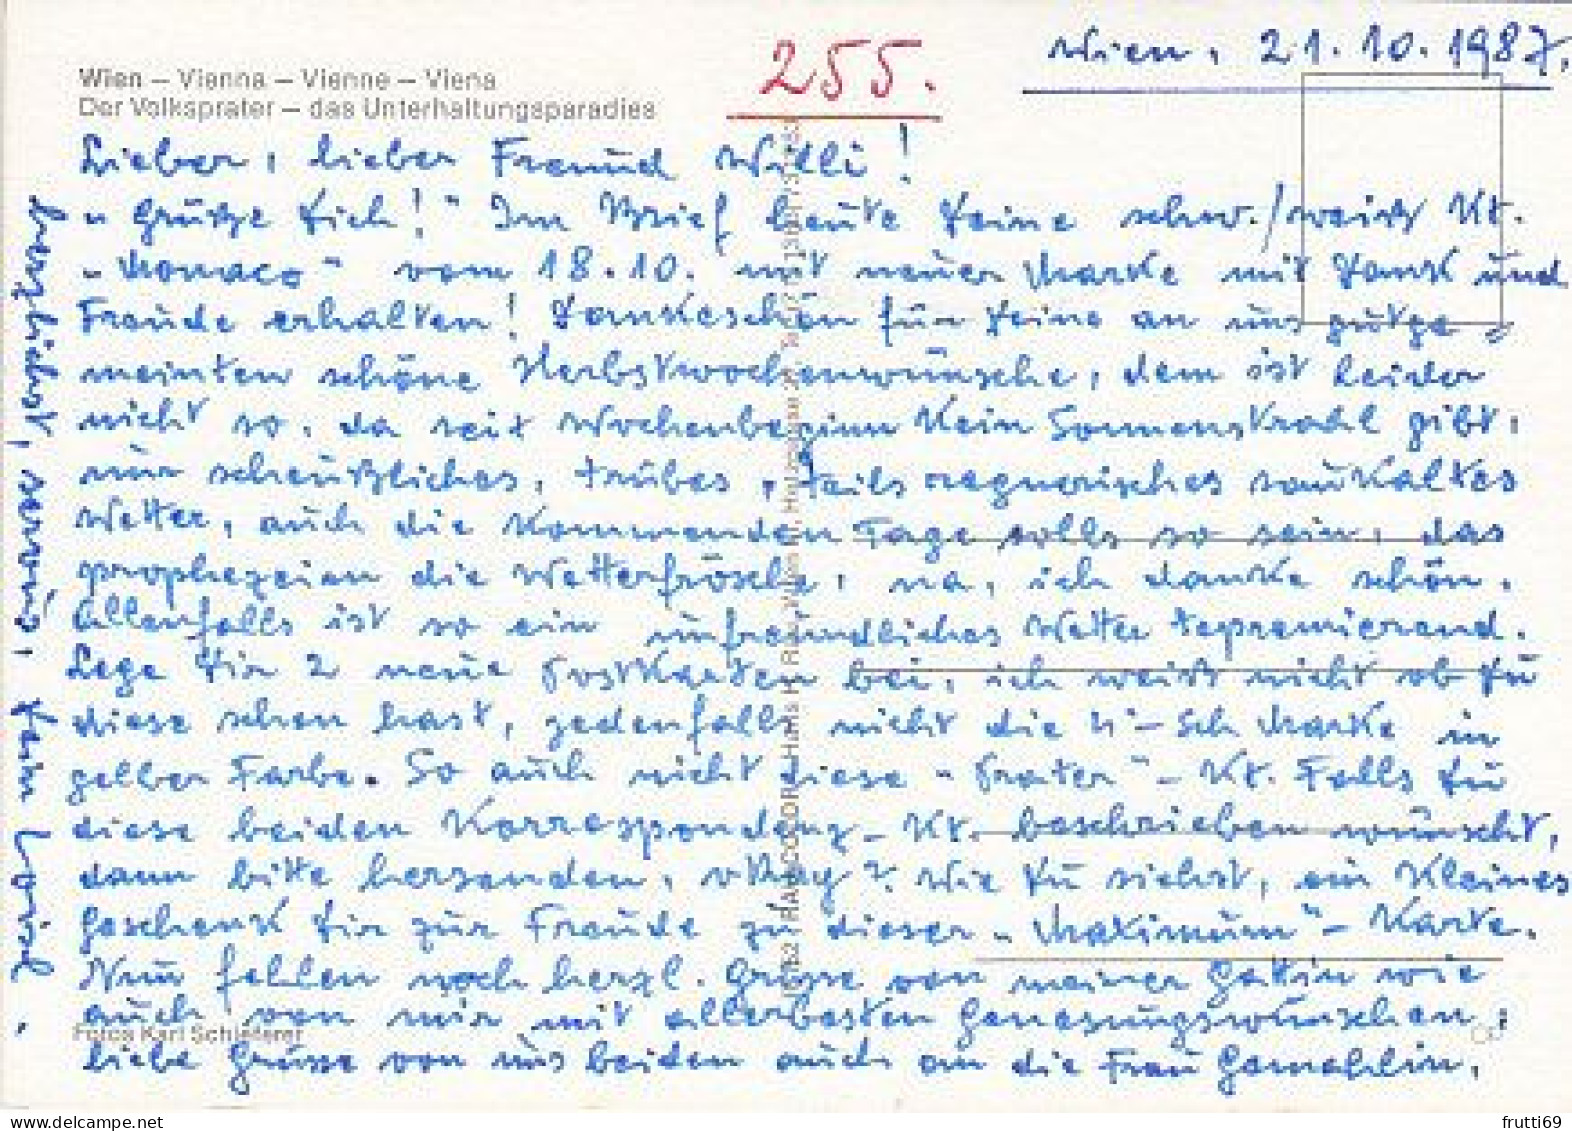 Wien – Vienna – Vienne – Viena
Der Volksprater – das Unterhaltungsparadies
255.
Wien, 21.10.1987.
Lieber, lieber Freund Willi!
"Grüße Dich!" Im Brief heute Deine schw./weiß Kt.
"Monaco" vom 18.10. mit neuer Marke mit Dank und
Freude erhalten! Dankeschön für Deine an uns gutge
meinten schöne Herbstwochenwünsche, dem ist leider
nicht so, da seit Wochenbeginn kein Sonnenstrahl gibt,
nur scheußliches, trübes, teils regnerisches saukaltes
Wetter, auch die kommenden Tage solls so sein, das
prophezeien die Wetterfrösche, na, ich danke schön.
Allenfalls ist so ein unfreundliches Wetter deprimierend.
Lege Dir 2 neue Postkarten bei, ich weiß nicht ob Du
diese schon hast, jedenfalls nicht die 4"-Sch Marke in
gelber Farbe. So auch nicht diese "Prater"-Kt. Falls Du
diese beiden Korrespondenz-Kt. beschrieben wünscht,
dann bitte hersenden, okay? Wie Du siehst, ein kleines
Geschenk Dir zur Freude zu dieser "Maximum"-Karte.
Nun fehlen noch herzl. Grüsse von meiner Gattin wie
auch von mir mit allerbesten Genesungswünschen,
liebe Grüsse von uns beiden auch an die Frau Gemahlin,
Fotos Karl Schieferer
frutti69
delcampe.net